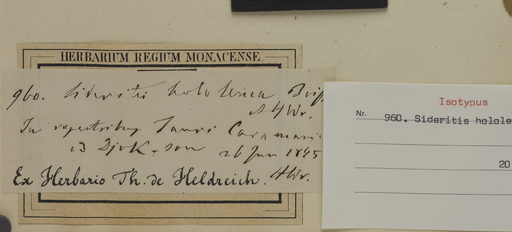 HERBARIUM REGIUM MONACENSE.
960. Sideritis hololeuca Boiss
& Hdr.
In rupestribus Tauri
26 Jun 1845
Ex Herbario Th. de Heldreich.
Isotypus
Nr. 960. Sideritis holole
20